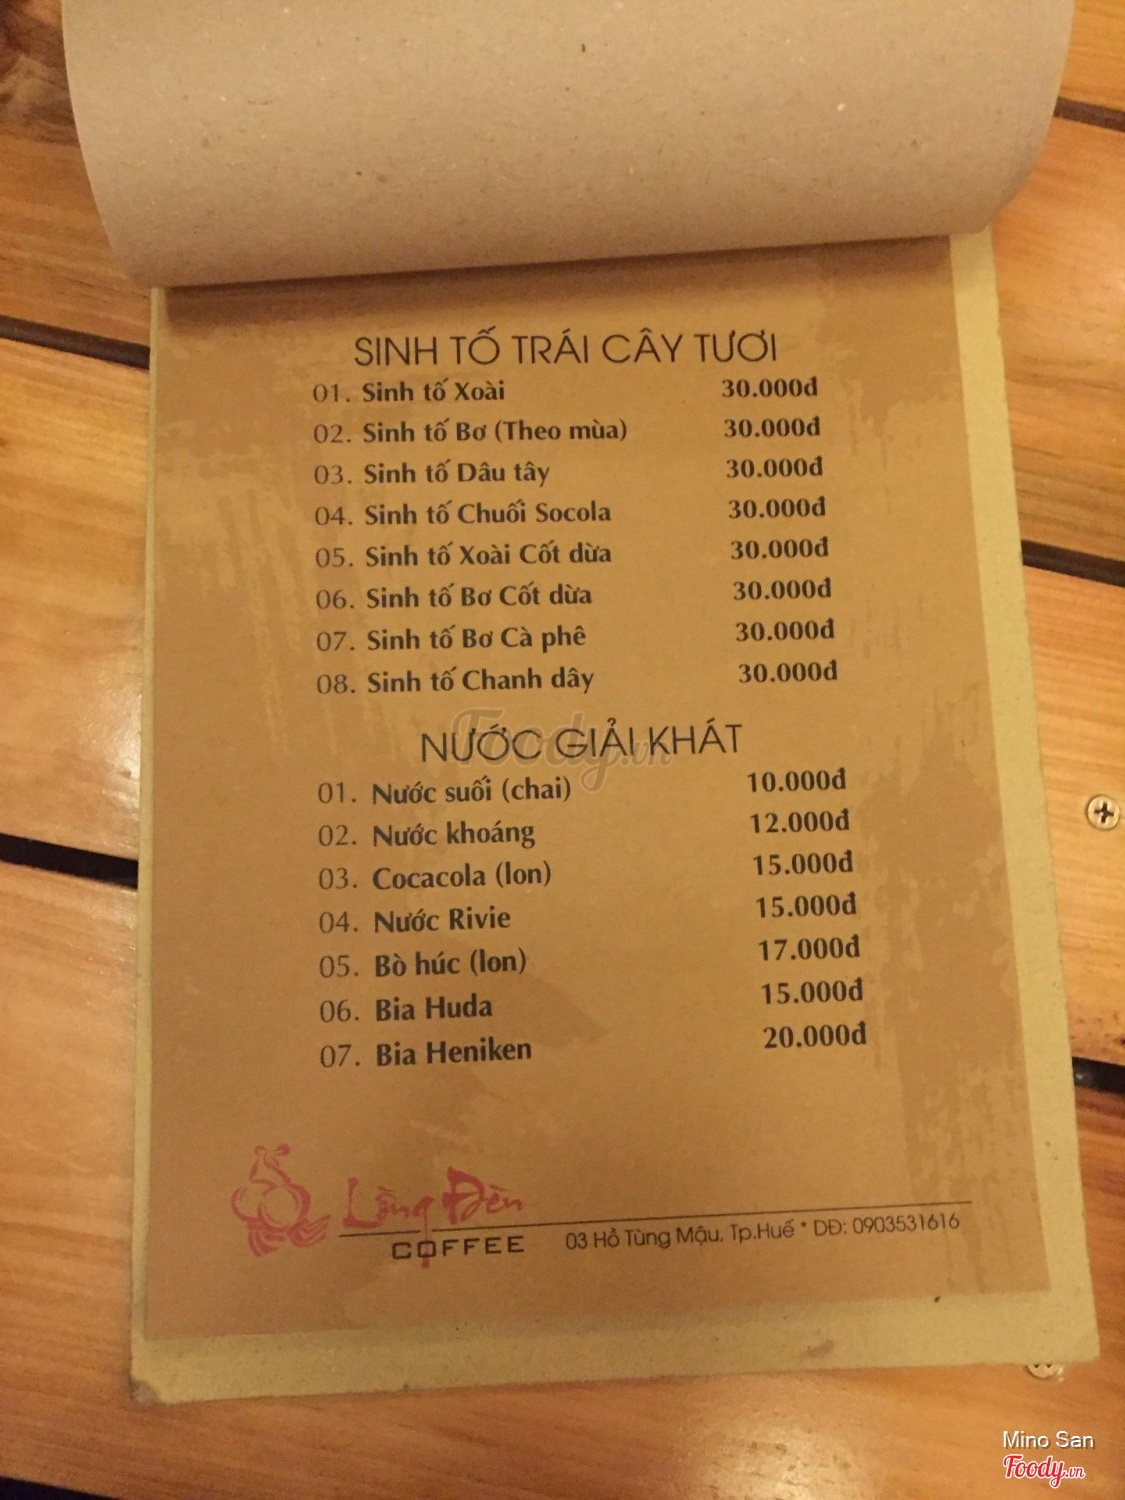 SINH TỐ TRÁI CÂY TƯƠI
01. Sinh tố Xoài 30.000đ
02. Sinh tố Bơ (Theo mùa) 30.000đ
03. Sinh tố Dâu tây 30.000đ
04. Sinh tố Chuối Socola 30.000đ
05. Sinh tố Xoài Cốt dừa 30.000đ
06. Sinh tố Bơ Cốt dừa 30.000đ
07. Sinh tố Bơ Cà phê 30.000đ
08. Sinh tố Chanh dây 30.000đ
Foody.vn
NƯỚC GIẢI KHÁT
01. Nước suối (chai) 10.000đ
02. Nước khoáng 12.000đ
03. Cocacola (lon) 15.000đ
04. Nước Rivie 15.000đ
05. Bò húc (lon) 17.000đ
06. Bia Huda 15.000đ
07. Bia Heniken 20.000đ
Lồng Đèn
COFFEE
03 Hồ Tùng Mậu, Tp.Huế * DĐ: 0903531616
Mino San
Foody.vn